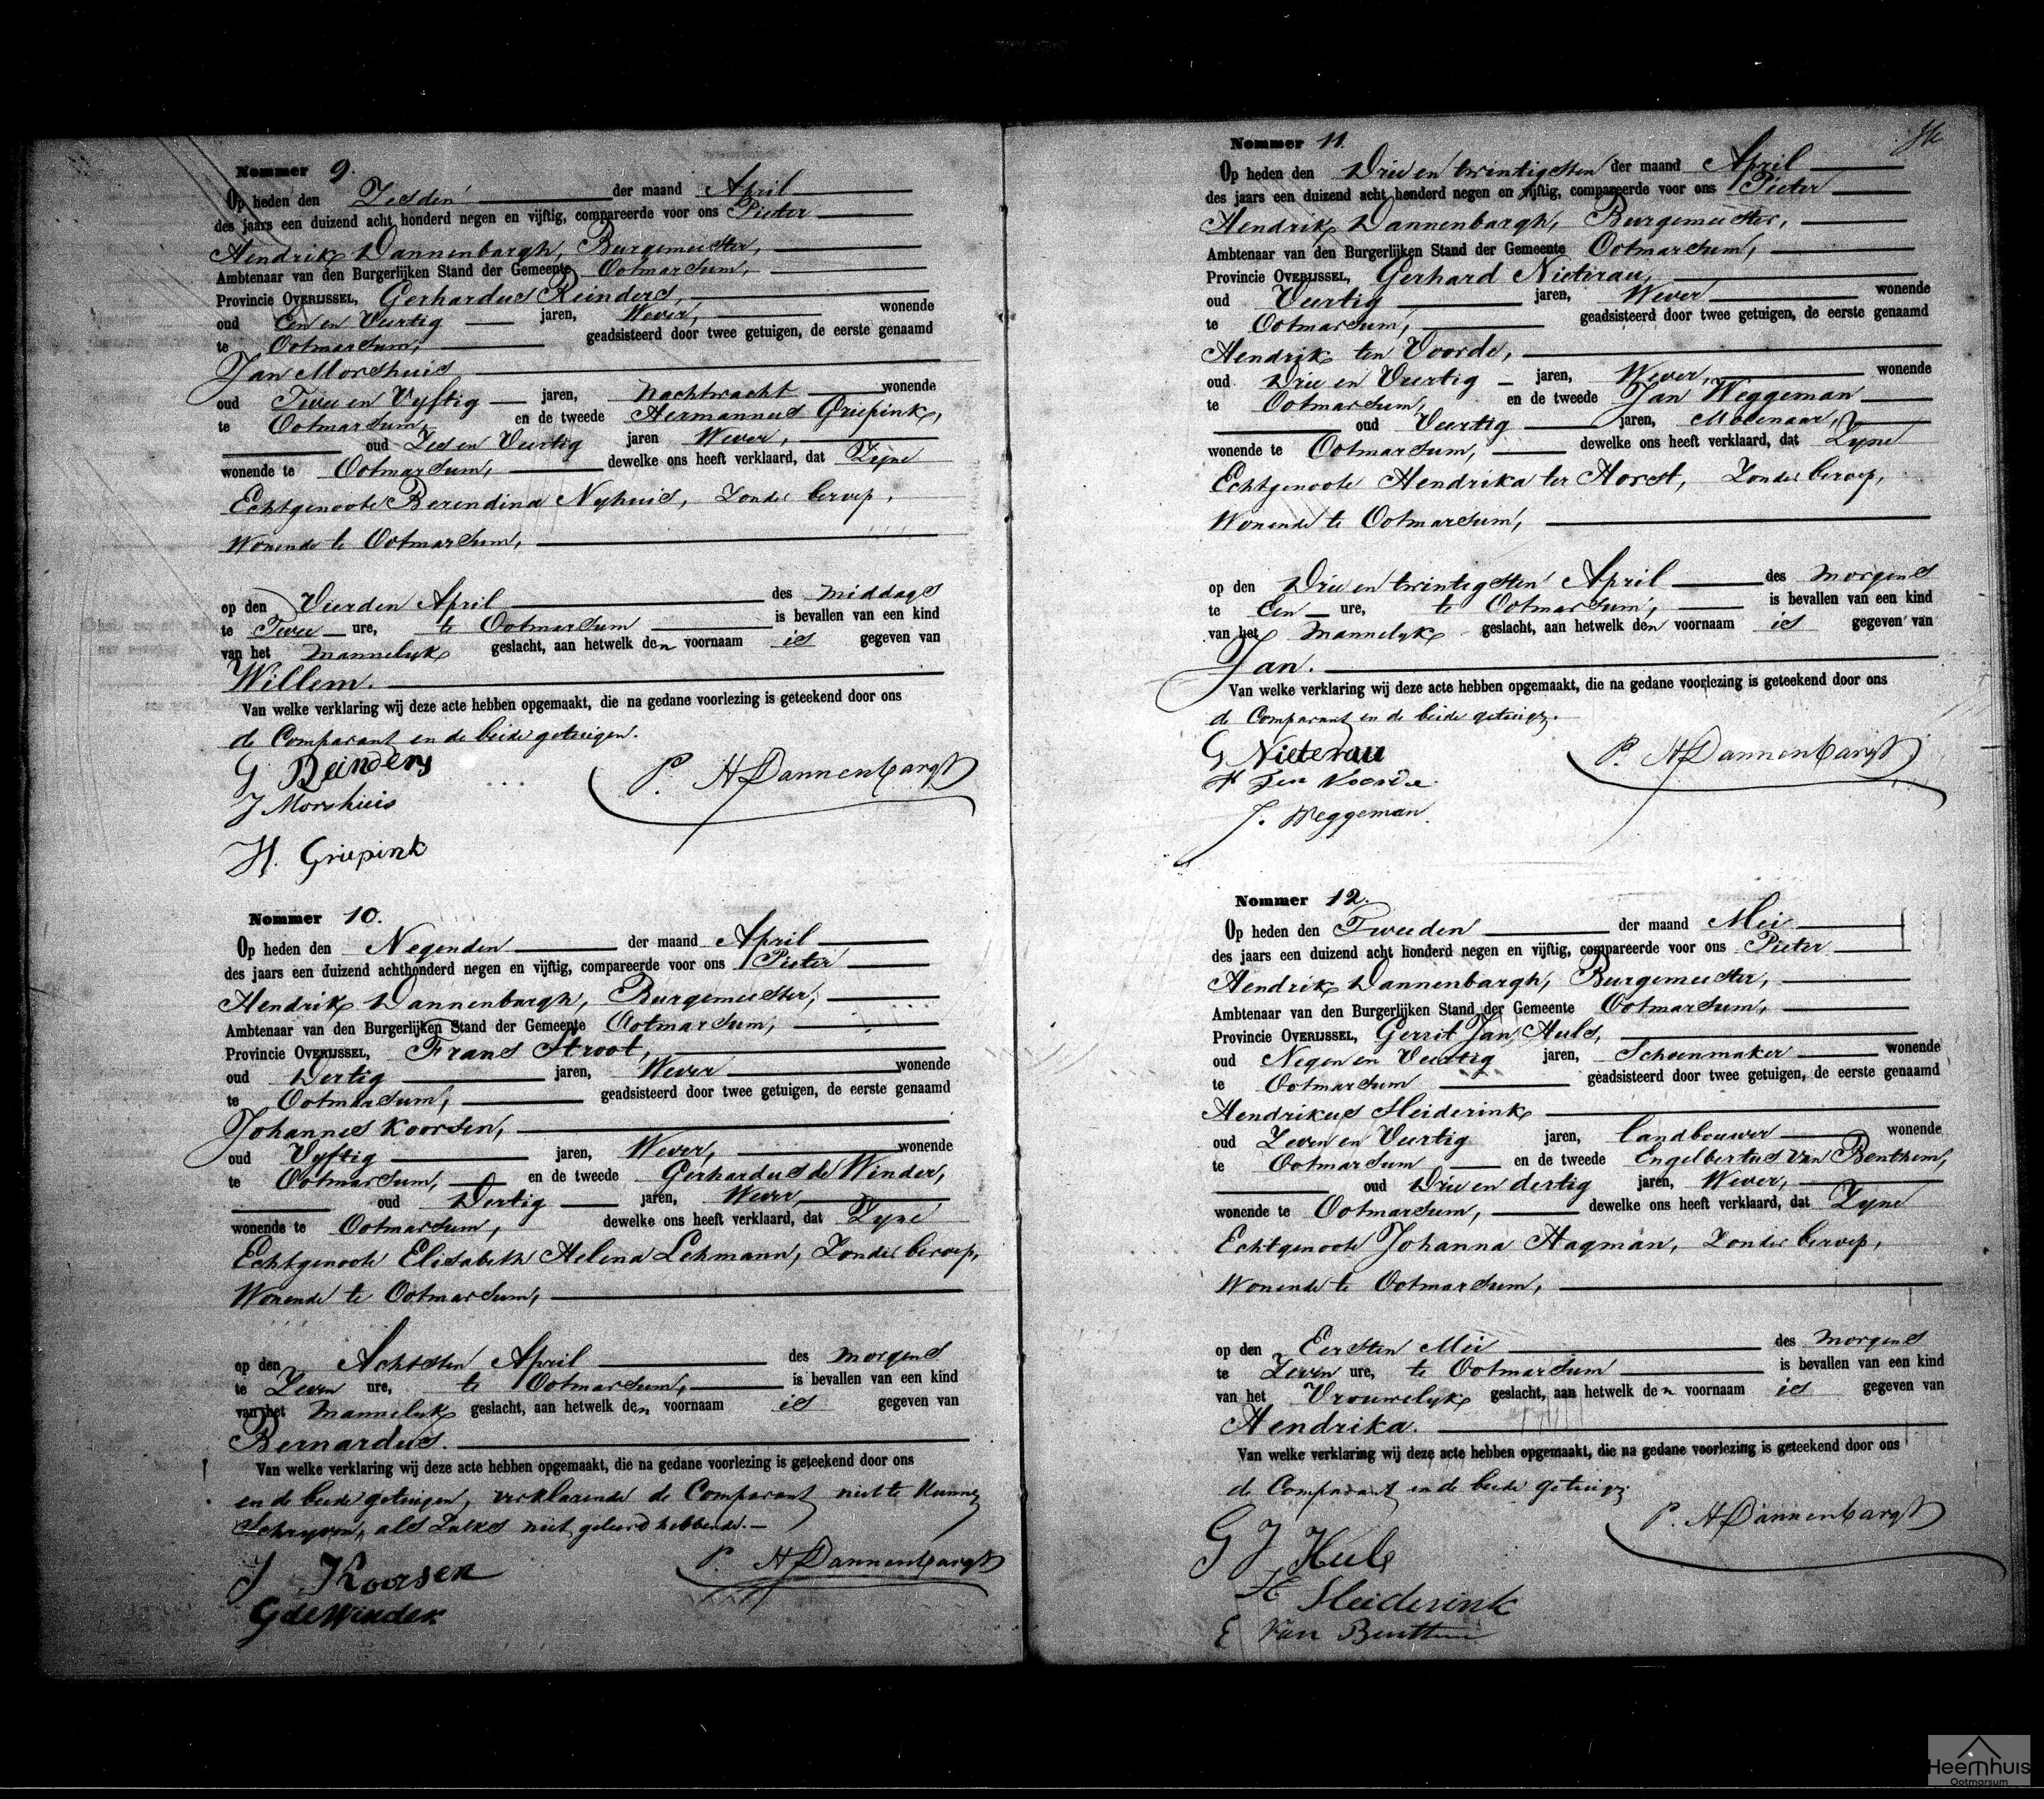 Nommer 9.
Op heden den Zesden der maand April
des jaars een duizend acht honderd negen en vijftig, compareerde voor ons Pieter
Hendrik Dannenbargh, Burgemeester,
Ambtenaar van den Burgerlijken Stand der Gemeente Ootmarsum,
Provincie OVERIJSSEL, Gerhardus Reinders,
oud Een en Veertig jaren, Wever, wonende
te Ootmarsum, geadsisteerd door twee getuigen, de eerste genaamd
Jan Morshuis
oud Twee en Vyftig jaren, Nachtwacht wonende
te Ootmarsum, en de tweede Hermannus Griepink,
oud Zes en Veertig jaren Wever,
wonende te Ootmarsum, dewelke ons heeft verklaard, dat Zyne
Echtgenoote Berendina Nyhuis, Zonder beroep,
Wonende te Ootmarsum,
op den Vierden April des middags
te Twee ure, te Ootmarsum is bevallen van een kind
van het Mannelyk geslacht, aan hetwelk den voornaam is gegeven van
Willem.
Van welke verklaring wij deze acte hebben opgemaakt, die na gedane voorlezing is geteekend door ons
de Comparant en de beide getuigen.
G Reinders P. H Dannenbargh
J Morshuis
H. Griepink
Nommer 10.
Op heden den Negenden der maand April
des jaars een duizend achthonderd negen en vijftig, compareerde voor ons Pieter
Hendrik Dannenbargh, Burgemeester,
Ambtenaar van den Burgerlijken Stand der Gemeente Ootmarsum,
Provincie OVERIJSSEL, Frans Stroot,
oud Dertig jaren, Wever wonende
te Ootmarsum, geadsisteerd door twee getuigen, de eerste genaamd
Johannes Koorsen,
oud Vyftig jaren, Wever, wonende
te Ootmarsum, en de tweede Gerhardus de Winder,
oud Dertig jaren, Wever
wonende te Ootmarsum, dewelke ons heeft verklaard, dat Zyne
Echtgenoote Elisabeth Helena Lehmann, Zonder beroep,
Wonende te Ootmarsum,
op den Achtsten April des morgens
te Zeven ure, te Ootmarsum, is bevallen van een kind
van het Mannelyk geslacht, aan hetwelk den voornaam is gegeven van
Bernardus.
Van welke verklaring wij deze acte hebben opgemaakt, die na gedane voorlezing is geteekend door ons
en de beide getuigen, verklarende de Comparant niet te kunnen
Schryven, als Zulks niet geleerd hebbende.
J Koorsen P. H Dannenbargh
G de Winder
Nommer 11.
Op heden den Drie en twintigsten der maand April
des jaars een duizend acht honderd negen en vijftig, compareerde voor ons Pieter
Hendrik Dannenbargh, Burgemeester,
Ambtenaar van den Burgerlijken Stand der Gemeente Ootmarsum,
Provincie OVERIJSSEL, Gerhard Nieterau,
oud Veertig jaren, Wever wonende
te Ootmarsum, geadsisteerd door twee getuigen, de eerste genaamd
Hendrik ten Voorde,
oud Drie en Veertig jaren, Wever, wonende
te Ootmarsum, en de tweede Jan Weggeman
oud Veertig jaren, Molenaar,
wonende te Ootmarsum, dewelke ons heeft verklaard, dat Zyne
Echtgenoote Hendrika ter Horst, Zonder beroep,
Wonende te Ootmarsum,
op den Drie en twintigsten April des morgens
te Een ure, te Ootmarsum, is bevallen van een kind
van het Mannelyk geslacht, aan hetwelk den voornaam is gegeven van
Jan.
Van welke verklaring wij deze acte hebben opgemaakt, die na gedane voorlezing is geteekend door ons
de Comparant en de beide getuigen.
G Nieterau P. H Dannenbargh
H Ten Voorde
J. Weggeman
Nommer 12.
Op heden den Tweeden der maand Mei
des jaars een duizend acht honderd negen en vijftig, compareerde voor ons Pieter
Hendrik Dannenbargh, Burgemeester,
Ambtenaar van den Burgerlijken Stand der Gemeente Ootmarsum,
Provincie OVERIJSSEL, Gerrit Jan Huls,
oud Negen en Veertig jaren, Schoenmaker wonende
te Ootmarsum geadsisteerd door twee getuigen, de eerste genaamd
Hendrikus Sleiderink
oud Zeven en Veertig jaren, landbouwer wonende
te Ootmarsum en de tweede Engelbertus van Benthem,
oud Drie en dertig jaren, Wever,
wonende te Ootmarsum, dewelke ons heeft verklaard, dat Zyne
Echtgenoote Johanna Hagman, Zonder beroep,
Wonende te Ootmarsum,
op den Eersten Mei des morgens
te Zeven ure, te Ootmarsum is bevallen van een kind
van het Vrouwelyk geslacht, aan hetwelk den voornaam is gegeven van
Hendrika.
Van welke verklaring wij deze acte hebben opgemaakt, die na gedane voorlezing is geteekend door ons
de Comparant en de beide getuigen
G J Huls P. H Dannenbargh
H Sleiderink
E Van Benthem
Heemhuis
Ootmarsum